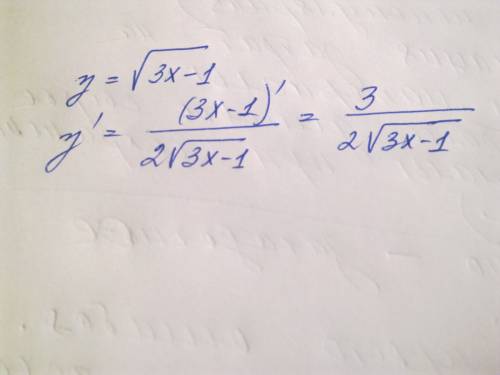 y = √(3x-1)
y' = (3x-1)' / 2√(3x-1) = 3 / 2√(3x-1)